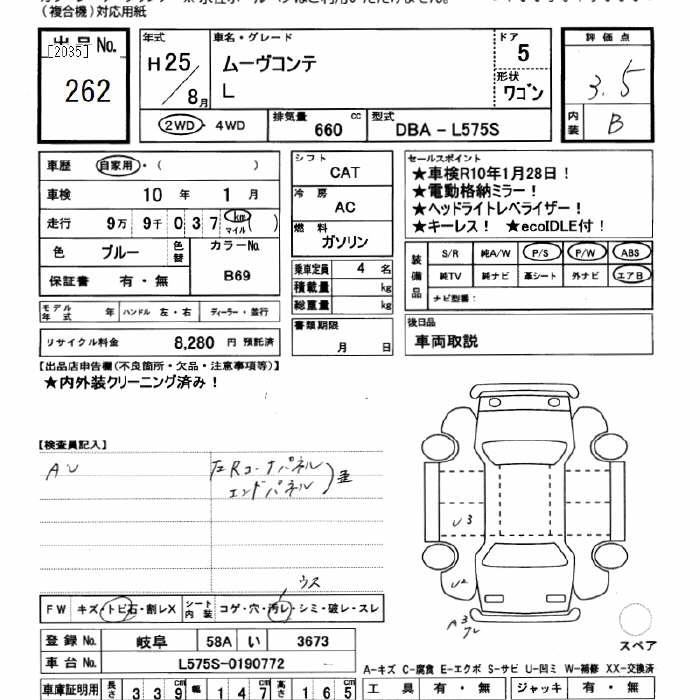 (複合機)対応用紙
出品No.
[2035]
262
年式
H25/8月
車名・グレード
ムーヴコンテ
L
ドア
5
形状
ワゴン
2WD・4WD
排気量 660 cc
型式 DBA－L575S
評価点
3.5
内装 B
車歴 自家用・( )
車検 10年 1月
走行 9万 9千 0 3 7 km マイル ( )
色 ブルー 色替 カラーNo. B69
保証書 有・無
モデル年式 年 ハンドル 左・右 ディーラー・並行
リサイクル料金 8,280 円 預託済
シフト
CAT
冷房
AC
燃料
ガソリン
乗車定員 4 名
積載量 kg
総重量 kg
書類期限
月 日
セールスポイント
★車検R10年1月28日！
★電動格納ミラー！
★ヘッドライトレベライザー！
★キーレス！ ★ecoIDLE付！
装備品
S/R 純A/W P/S P/W ABS
純TV 純ナビ 革シート 外ナビ エアB
ナビ型番：
後日品
車両取説
【出品店申告欄(不良箇所・欠品・注意事項等)】
★内外装クリーニング済み！
【検査員記入】
AU
左Rコーナパネル
エンドパネル
U3
U2
A3
ウス
FW キズ・トビ石・割レX シート内装 コゲ・穴・汚レ・シミ・破レ・スレ
スペア
登録No. 岐阜 58A い 3673
車台No. L575S-0190772
A-キズ C-腐食 E-エクボ S-サビ U-凹ミ W-補修 XX-交換済
車庫証明用 長さ 339 cm 幅 147 cm 高さ 165 cm
工具 有・無 ジャッキ 有・無